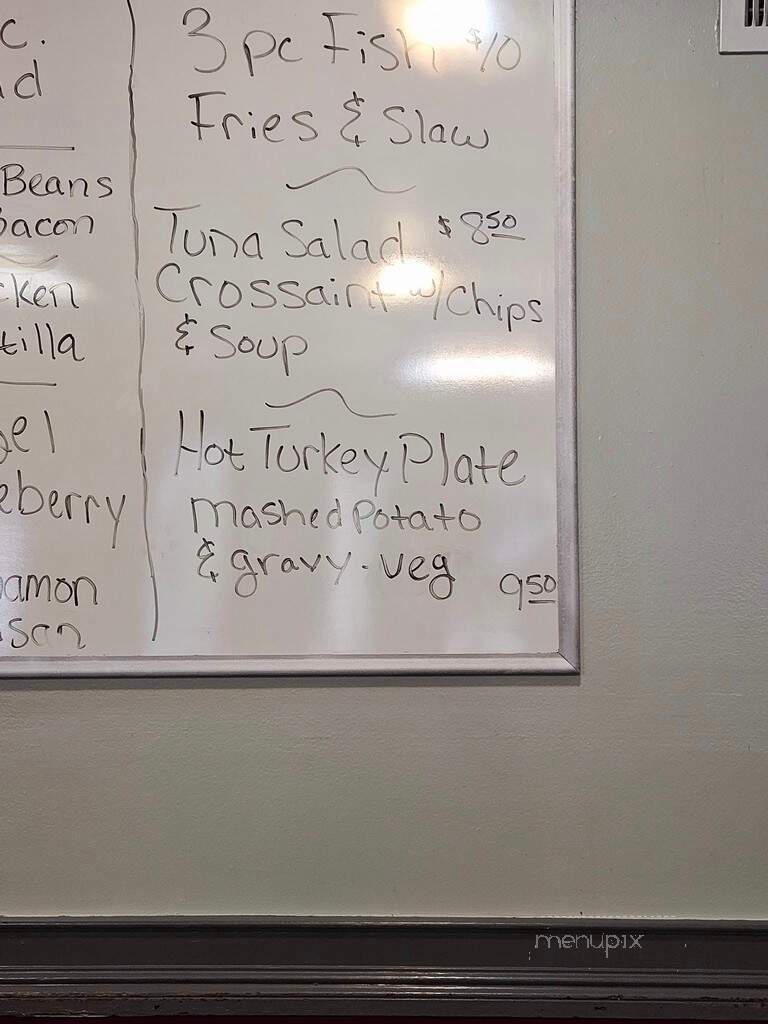 c.
d
Beans
bacon
cken
tilla
gel
eberry
namon
san
3 pc Fish $10
Fries & Slaw
Tuna Salad $8 50
Crossaint w/ Chips
& Soup
Hot Turkey Plate
mashed Potato
& gravy. veg
9 50
menupix